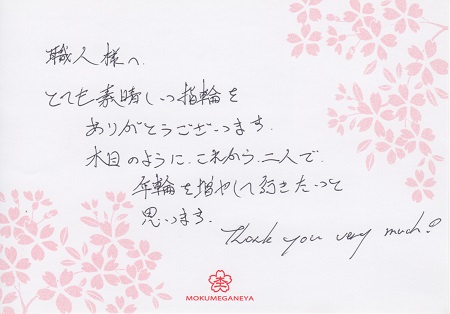 職人様へ
とても素晴しい指輪を
ありがとうございます。
木目のように、これから、二人で、
年輪を増やして行きたいと
思います。
Thank you very much!
MOKUMEGANEYA